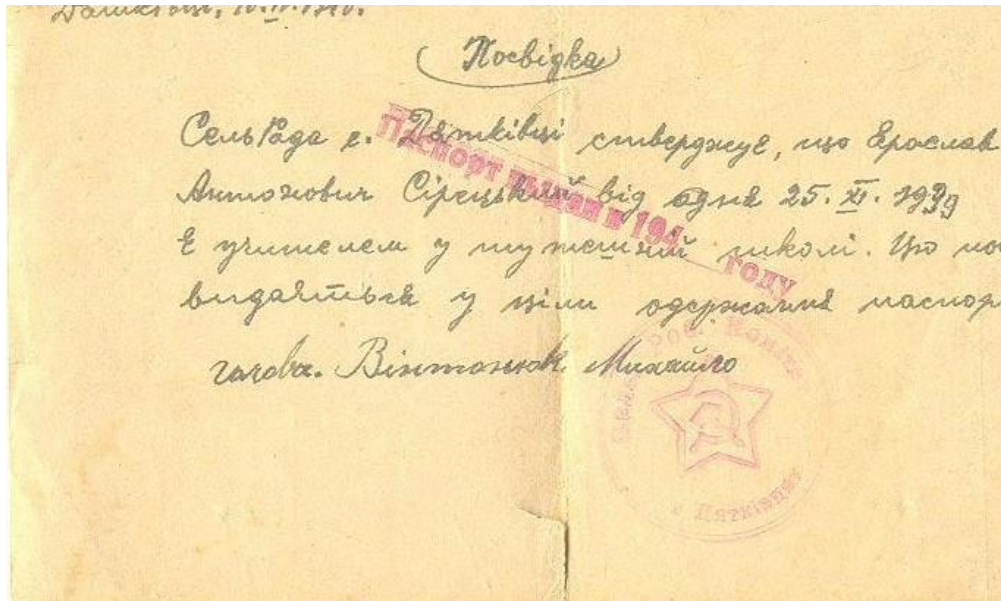 Посвідка
СельРада с. Дятківці стверджує, що Ярослав
Антонович Сірецький від дня 25. XI. 1939
Є учителем у тутешній школі. Цю
видається у ціли одержання паспор
голова. Вінтонюк Михайло
Паспорт выдан в 194 году
Дятківцях